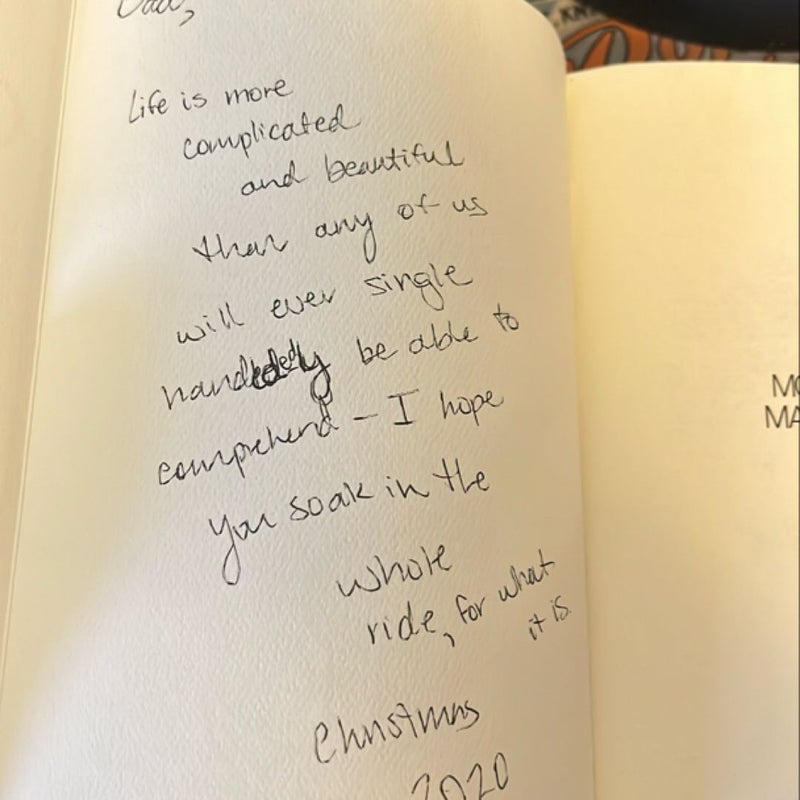 Dad,
Life is more
complicated
and beautiful
than any of us
will ever single
handedly be able to
comprehend – I hope
you soak in the
whole
ride, for what
it is.
Christmas
2020
MO
MA